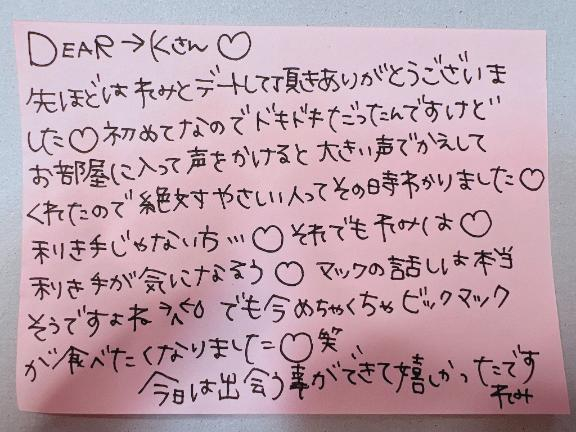 DEAR→Kさん♡
先ほどはれみとデートして頂きありがとうございま
した♡初めてなのでドキドキだったんですけど
お部屋に入って声をかけると大きい声でかえして
くれたので絶対やさしい人ってその時わかりました♡
利き手じゃない方…♡それでもれみは♡
利き手が気になるう♡マックの話しは本当
そうですよね でも今めちゃくちゃビックマック
が食べたくなりました♡笑
今日は出会う事ができて嬉しかったです
れみ